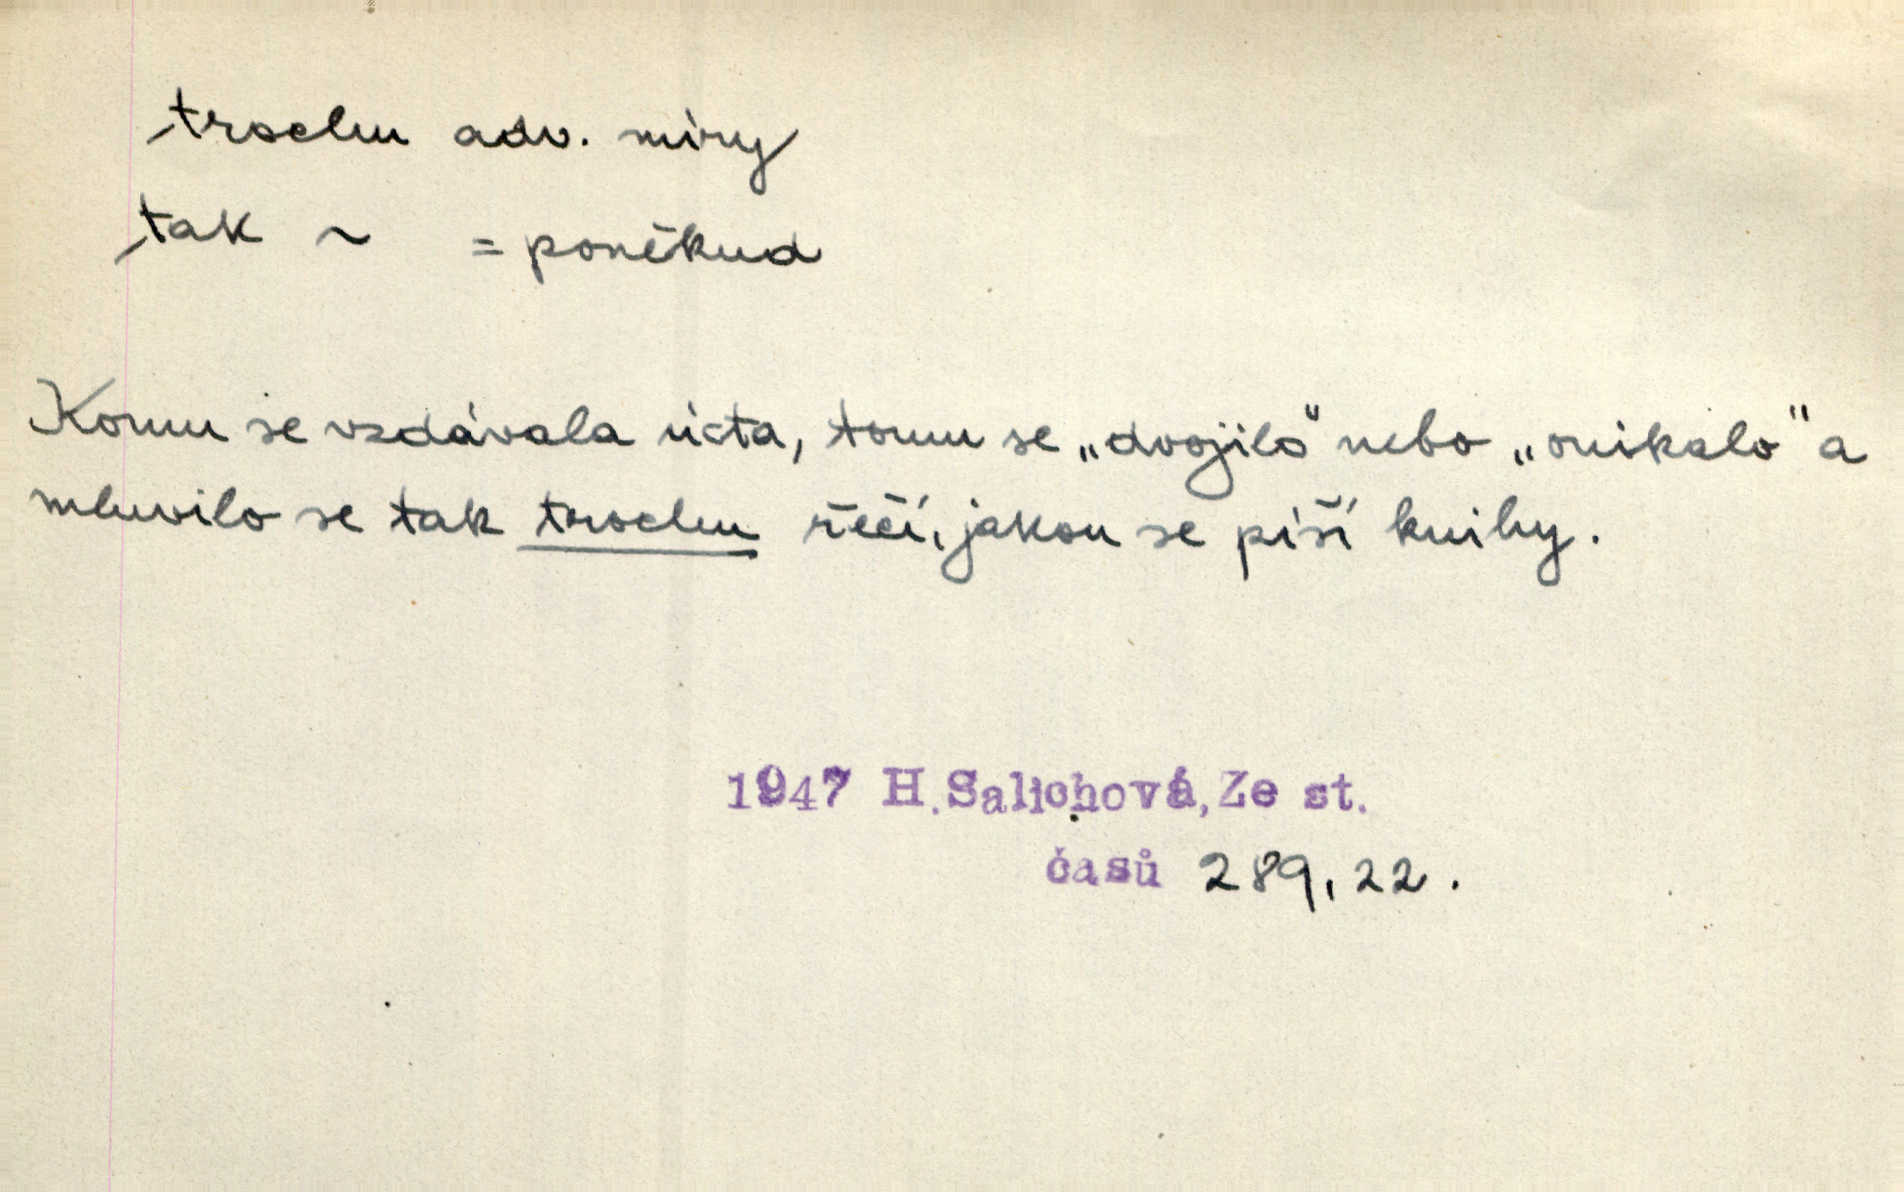 trochu adv. míry
tak ~ = poněkud
Komu se vzdávala úcta, tomu se „dvojilo" nebo „onikalo" a
mluvilo se tak trochu řečí, jakou se píší knihy.
1947 H.Salichová, Ze st.
časů 289, 22.